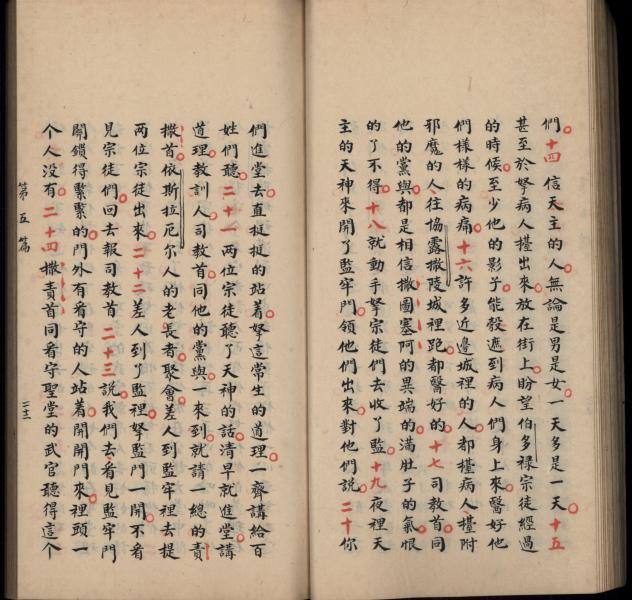 們十四信天主的人無論是男是女一天多是一天十五
甚至於拏病人擡出來放在街上盼望伯多祿宗徒經過
的時候至少他的影子能彀遮到病人們身上來醫好他
們樣樣的病痛十六許多近邊城裡的人都擡病人擡附
邪魔的人往協露撒陵城裡跑都醫好的十七司教首同
他的黨與都是相信撒圖塞阿的異端的滿肚子的氣恨
的了不得十八就動手拏宗徒們去收了監十九夜裡天
主的天神來開了監牢門領他們出來對他們說二十你
們進堂去直挺挺的站着拏這常生的道理一齊講給百
姓們聽二十一两位宗徒聽了天神的話清早就進堂講
道理教訓人司教首同他的黨與一來到就請一總的責
撒首依斯拉厄尔人的老長者聚會差人到監牢裡去提
两位宗徒出來二十二差人到了監裡拏監門一開不看
見宗徒們回去報司教首二十三說我們去看見監牢門
関鎖得緊緊的門外有看守的人站着開開門來裡頭一
个人没有二十四撒責首同看守聖堂的武官聽得這个
第五篇
二十三